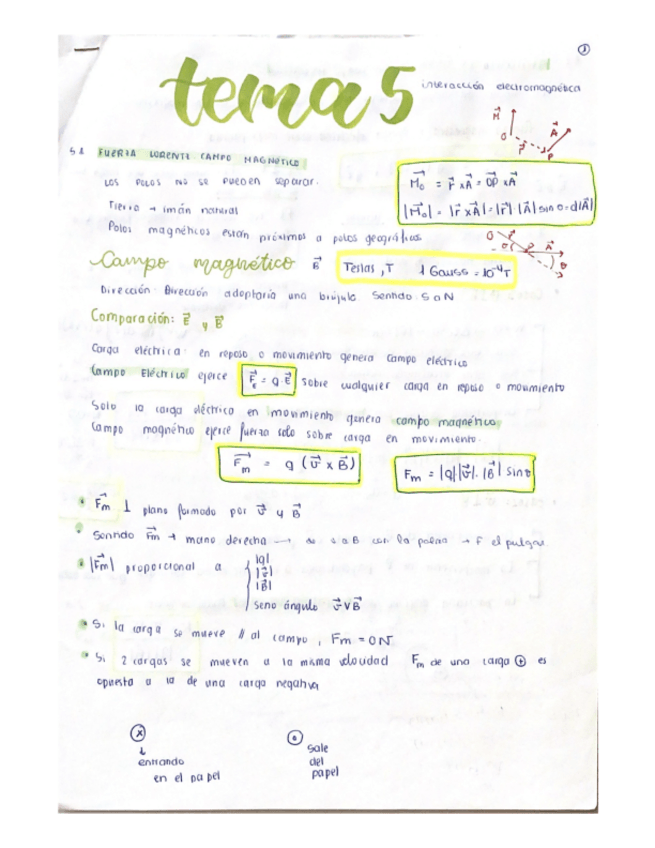 1
tema 5 interacción electromagnética
5.1 FUERZA LORENTZ CAMPO MAGNÉTICO
Los polos no se pueden separar.
Tierra → imán natural
Polos magnéticos están próximos a polos geográficos
M⃗o = r⃗ x A⃗ = OP⃗ x A⃗
|M⃗o| = |r⃗ x A⃗| = |r⃗| |A⃗| sin θ = d|A⃗|
Campo magnético B⃗ Teslas, T 1 Gauss = 10⁻⁴ T
Dirección: Dirección adoptaría una brújula Sentido S a N
Comparación: E⃗ y B⃗
Carga eléctrica: en reposo o movimiento genera campo eléctrico
Campo Eléctrico ejerce F⃗e = q·E⃗ sobre cualquier carga en reposo o movimiento
Solo la carga eléctrica en movimiento genera campo magnético
Campo magnético ejerce fuerza solo sobre carga en movimiento.
F⃗m = q (v⃗ x B⃗)
Fm = |q||v⃗|·|B⃗| sin θ
• F⃗m ⊥ plano formado por v⃗ y B⃗
• Sentido F⃗m → mano derecha → v a B con la palma → F el pulgar
• |F⃗m| proporcional a { |q|
|v⃗|
|B⃗|
seno ángulo v⃗ y B⃗
• Si la carga se mueve // al campo, Fm = 0 N
• Si 2 cargas se mueven a la misma velocidad Fm de una carga ⊕ es
opuesta a la de una carga negativa
ⓧ
↓
entrando
en el papel
⊙
Sale
del
papel